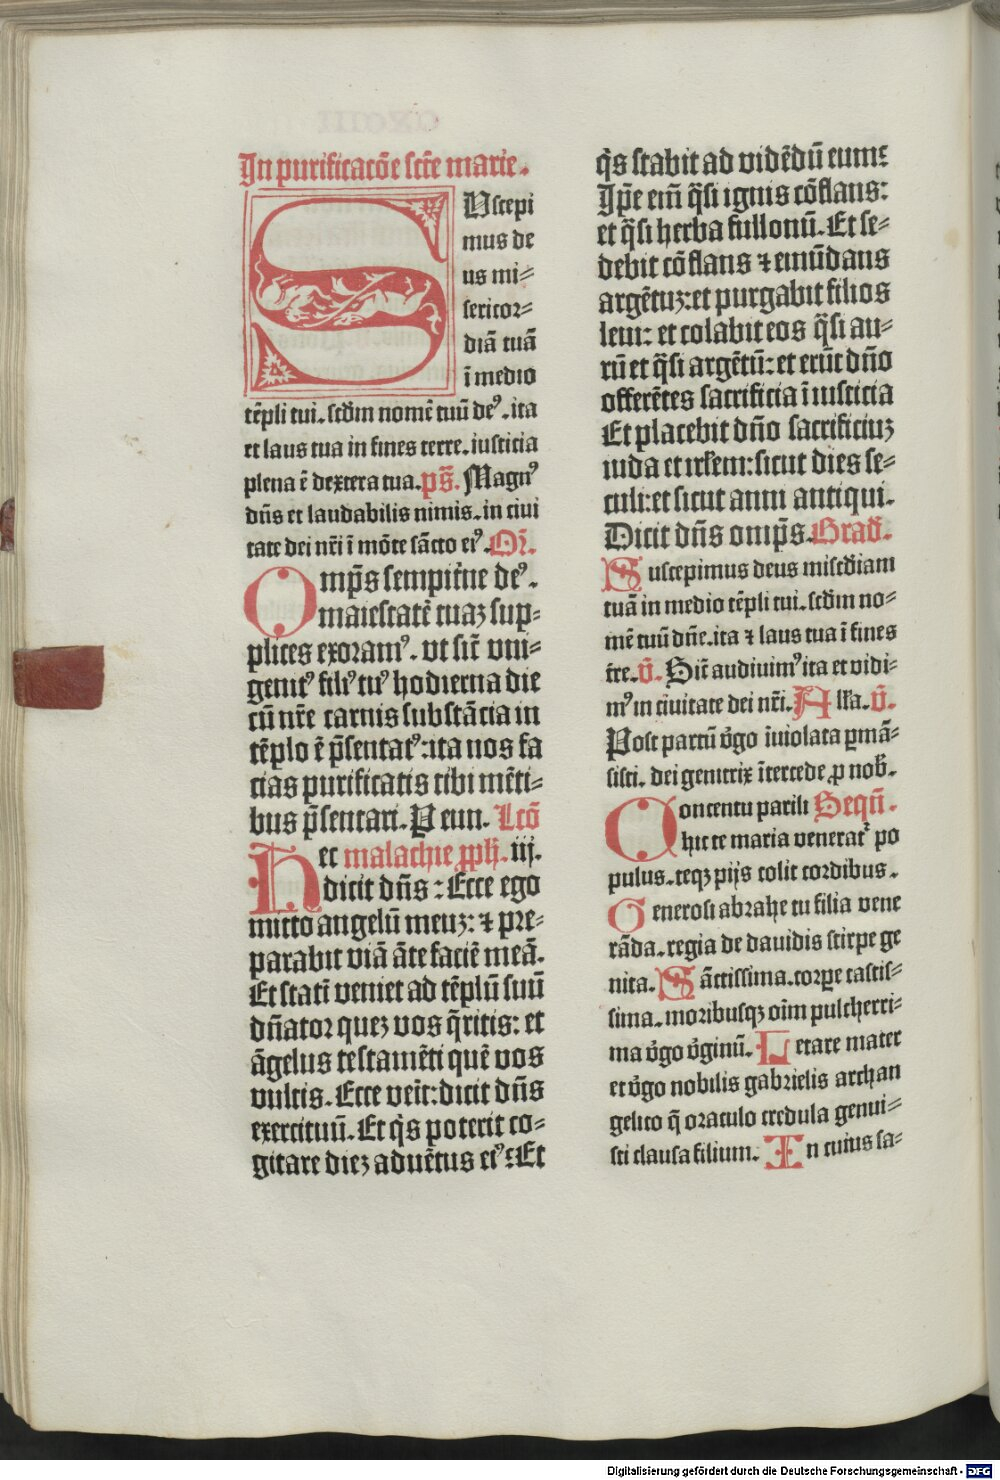 In purificacōe sctē marie.
SUscepi
mus de
us mi⸗
sericor⸗
diā tuā
ī medio
tēpli tui. scd̄m nomē tuū deꝰ. ita
et laus tua in fines terre. iusticia
plena ē dextera tua. ps̄. Magnꝰ
dn̄s et laudabilis nimis. in ciui
tate dei nr̄i ī mōte sācto eiꝰ. Or̄.
Omp̄s sempit̄ne deꝰ.
maiestatē tuaꝫ sup⸗
plices exoramꝰ. vt sic̄ vni⸗
genitꝰ filiꝰ tuꝰ hodierna die
cū nr̄e carnis substācia in
tēplo ē p̄sentatꝰ: ita nos fa
cias purificatis tibi mēti⸗
bus p̄sentari. P eun. Lcō
Hec malachie ꝓph̄. iij.
dicit dn̄s: Ecce ego
mitto angelū meuꝫ: ⁊ pre⸗
parabit viā āte faciē meā.
Et statī veniet ad tēplū suū
dn̄ator queꝫ vos q̄ritis: et
āgelus testamēti quē vos
vultis. Ecce veīt: dicit dn̄s
exercituū. Et q̄s poterit co⸗
gitare dieꝫ aduētus eiꝰ: Et
q̄s stabit ad vidēdū eum:
Ip̄e eī q̄si ignis cōflans:
et q̄si herba fullonū. Et se⸗
debit cōflans ⁊ emūdans
argētuꝫ: et purgabit filios
leui: et colabit eos q̄si au⸗
rū et q̄si argētū: et erūt dn̄o
offerētes sacrificia ī iusticia
Et placebit dn̄o sacrificiuꝫ
iuda et irl̄em: sicut dies se⸗
culi: et sicut anni antiqui.
Dicit dn̄s omp̄s. Grad̄.
Suscepimus deus misc̄diam
tuā in medio tēpli tui. scd̄m no⸗
mē tuū dn̄e. ita ⁊ laus tua ī fines
t̄re. v̄. Sic̄ audiuimꝰ ita et vidi⸗
mꝰ in ciuitate dei nr̄i. All̄a. v̄.
Post partū v̄go īuiolata ꝑmā⸗
sisti. dei genitrix ītercede ꝓ nob̄.
Concentu parili Seqū.
hic te maria venerat᷑ po
pulus. teqꝫ pijs colit cordibus.
Generosi abrahe tu filia vene
rāda. regia de dauidis stirpe ge
nita. Sāctissima. corꝑe castis⸗
sima. moribusqꝫ oīm pulcherri⸗
ma v̄go v̄ginū. Letare mater
et v̄go nobilis gabrielis archan
gelico q̄ oraculo credula genui⸗
sti clausa filium. In cuius sa⸗
Digitalisierung gefördert durch die Deutsche Forschungsgemeinschaft - DFG